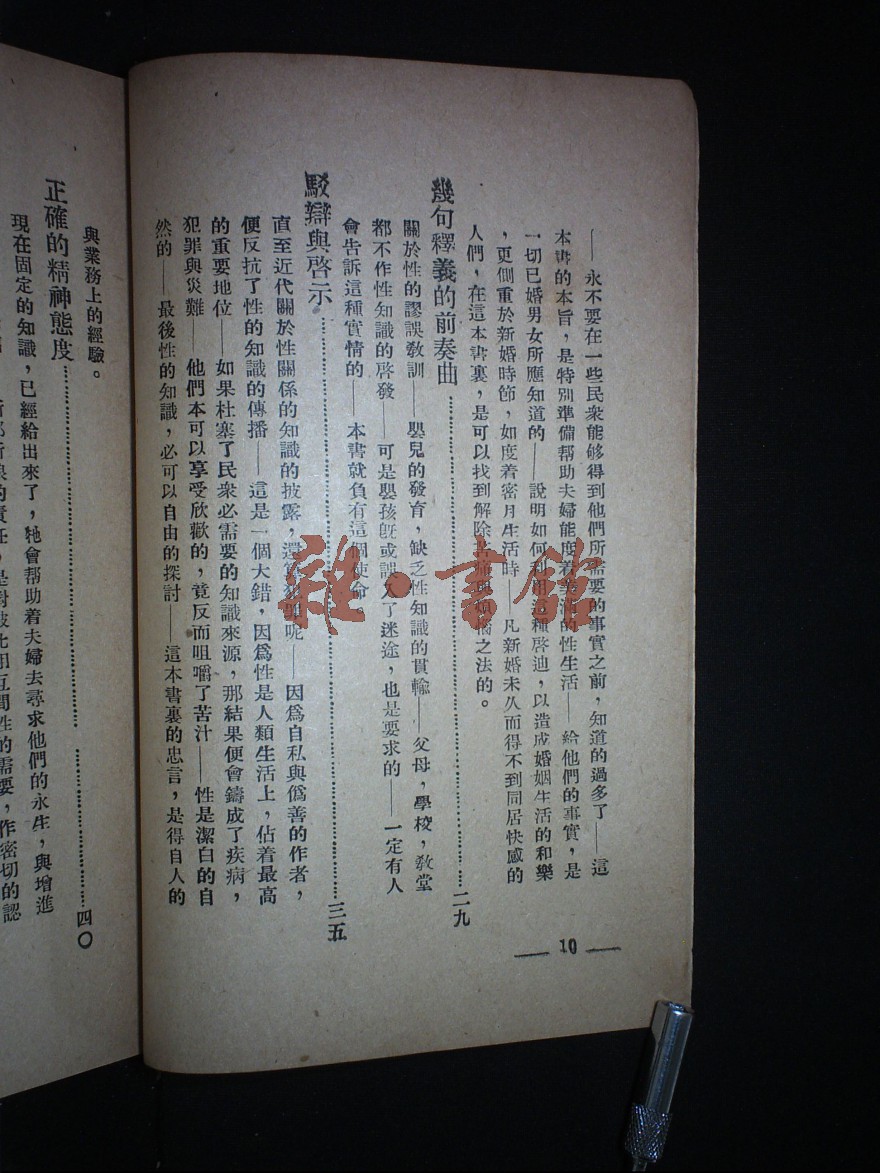 —— 永不要在一些民衆能够得到他們所需要的事實之前，知道的過多了 —— 這
本書的本旨，是特別準備帮助夫婦能度着美滿的性生活 —— 給他們的事實，是
一切已婚男女所應知道的 —— 說明如何利用這種啓迪，以造成婚姻生活的和樂
，更側重於新婚時節，如度着密月生活時 —— 凡新婚未久而得不到同居快感的
人們，在這本書裏，是可以找到解除苦痛與煩惱之法的。
幾句釋義的前奏曲……二九
關於性的謬誤敎訓 —— 嬰兒的發育，缺乏性知識的貫輸 —— 父母，學校，敎堂
都不作性知識的啓發 —— 可是嬰孩旣或誤入了迷途，也是要求的 —— 一定有人
會告訴這種實情的 —— 本書就負有這個使命。
駁辯與啓示……三五
直至近代關於性關係的知識的披露，還算犯罪呢 —— 因爲自私與僞善的作者，
便反抗了性的知識的傳播 —— 這是一個大錯，因爲性是人類生活上，佔着最高
的重要地位 —— 如果杜塞了民衆必需要的知識來源，那結果便會鑄成了疾病，
犯罪與災難 —— 他們本可以享受欣歡的，竟反而咀嚼了苦汁 —— 性是潔白的自
然的 —— 最後性的知識，必可以自由的探討 —— 這本書裏的忠言，是得自人的
— 10 —
與業務上的經驗。
正確的精神態度……四〇
現在固定的知識，已經給出來了，牠會帮助着夫婦去尋求他們的永生，與增進
的責任，是對彼此相互間性的需要，作密切的認
雜·書館